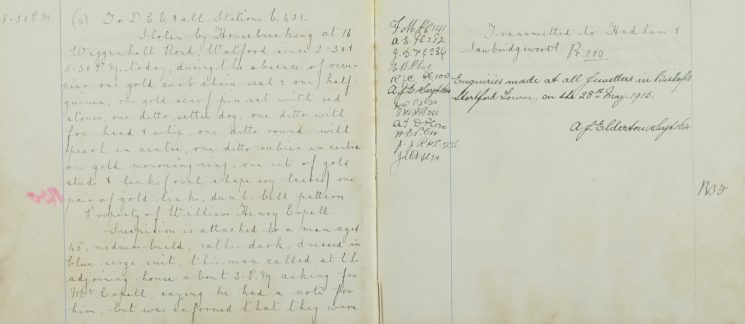 8-30 P.M. (4) To D.E.C. & all Stations C. 431.
Stolen by Housebreaking at 16
Wiggenhall Road, Watford since 2-30 &
5-30 P.M. today, during the absence of occu-
pier, one gold curb chain, seal & one half-
guinea, one gold scarf pin set with red
stones, one ditto setter dog, one ditto with
fox head & whip, one ditto round with
pearl in centre, one ditto rubies in centre
one gold mourning ring, one set of gold
studs & links (oval shape ivy leaves) one
pair of gold links, dumb-bell pattern
Property of William Henry Capell.
Suspicion is attached to a man aged
40, medium build, rather dark, dressed in
blue serge suit, this man called at the
adjoining house about 3-P.M. asking for
Mr. Capell, saying he had a note for
him, but was informed that they were
Transmitted to Hadham &
Sawbridgeworth Pc 209.
Enquiries made at all Jewellers in Bishops
Stortford Town, on the 28th May. 1915.